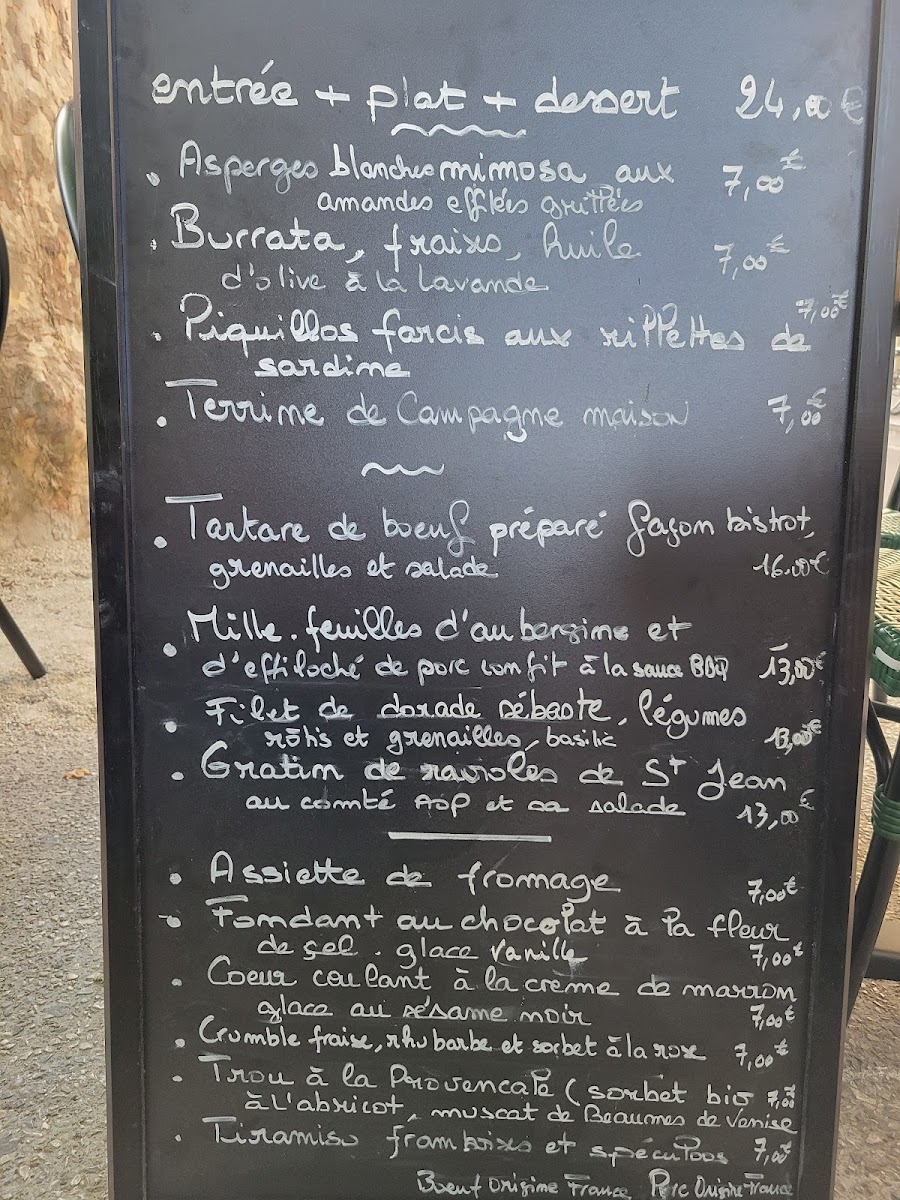 entrée + plat + dessert 24,00€
• Asperges blanches mimosa aux 7,00€
amandes effilées grillées
• Burrata, fraises, huile 7,00€
d'olive à la lavande
• Piquillos farcis aux rillettes de 7,00€
sardine
• Terrine de Campagne maison 7,00€
• Tartare de boeuf préparé façon bistrot,
grenailles et salade 16.00€
• Mille.feuilles d'aubergine et
d'effiloché de porc confit à la sauce BBQ 13,00€
• Filet de dorade sébaste, légumes
rôtis et grenailles, basilic 13,00€
• Gratin de ravioles de St Jean
au comté AOP et sa salade 13,00€
• Assiette de fromage 7,00€
• Fondant au chocolat à la fleur
de sel . glace vanille 7,00€
• Coeur coulant à la crème de marron
glace au sésame noir 7,00€
• Crumble fraise, rhubarbe et sorbet à la rose 7,00€
• Trou à la Provençale (sorbet bio 7,00
à l'abricot, muscat de Beaumes de Venise
• Tiramisu framboises et spéculoos 7,00€
Boeuf Origine France Porc Origine France